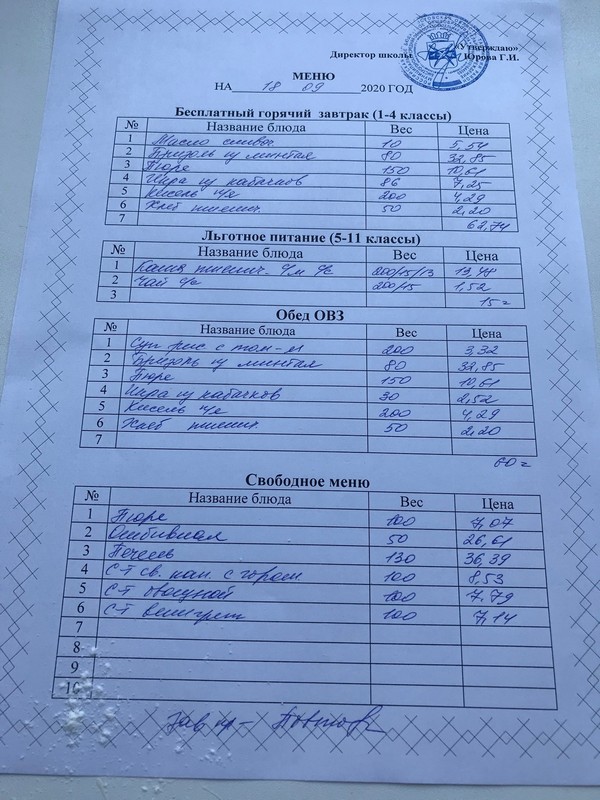 «Утверждаю»
Директор школы Юрова Г.И.
МЕНЮ
НА 18 09 2020 ГОД
Бесплатный горячий завтрак (1-4 классы)
№ Название блюда Вес Цена
1 Масло слив. 10 5,54
2 Бризоль из минтая 80 32,85
3 Пюре 150 10,61
4 Икра из кабачков 86 7,25
5 Кисель п/я 200 4,29
6 Хлеб пшенич. 50 2,20
7 62,74
Льготное питание (5-11 классы)
№ Название блюда Вес Цена
1 Каша пшенич. 200/15/13 13,48
2 Чай 200/15 1,52
3 15
Обед ОВЗ
№ Название блюда Вес Цена
1 Суп рис с том-м 200 3,32
2 Бризоль из минтая 80 32,85
3 Пюре 150 10,61
4 Икра из кабачков 30 2,52
5 Кисель п/я 200 4,29
6 Хлеб пшенич. 50 2,20
7
60
Свободное меню
№ Название блюда Вес Цена
1 Пюре 100 7,07
2 Отбивная 50 26,61
3 Печень 130 36,39
4 С-т св. кап. с горош. 100 8,53
5 С-т овощной 100 7,79
6 С-т винегрет 100 7,14
7
8
9
10
Зав пр-